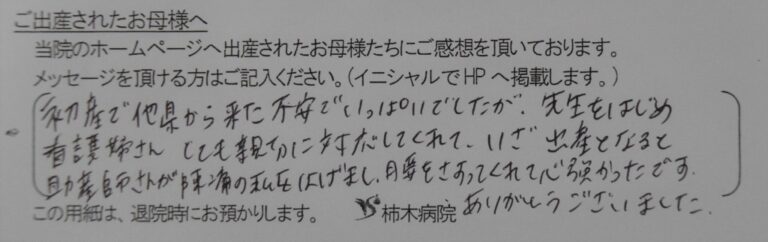 ご出産されたお母様へ
当院のホームページへ出産されたお母様たちにご感想を頂いております。
メッセージを頂ける方はご記入ください。（イニシャルでHPへ掲載します。）
初産で他県から来た不安でいっぱいでしたが、先生をはじめ
看護婦さん とても親切に対応してくれて、いざ出産となると
助産師さんが陣痛の私をはげまし、腰をさすってくれて心強かったです。
ありがとうございました。
この用紙は、退院時にお預かりします。 柿木病院